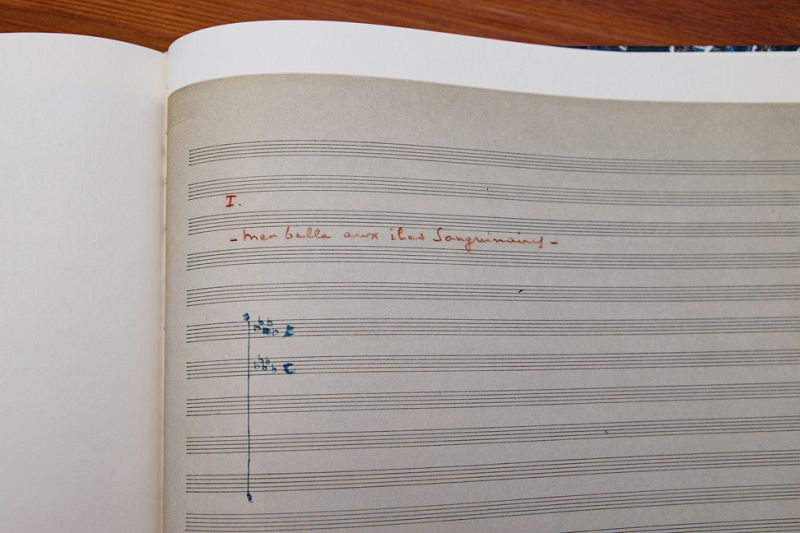 I.
- mer belle aux îles Sanguinaires -